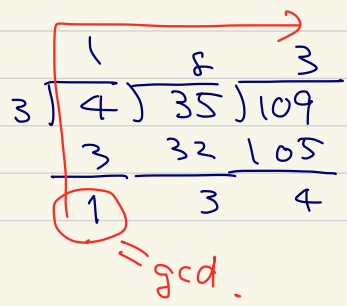 1 8 3
3 ) 4 ) 35 ) 109
3 32 105
1 3 4
= gcd.